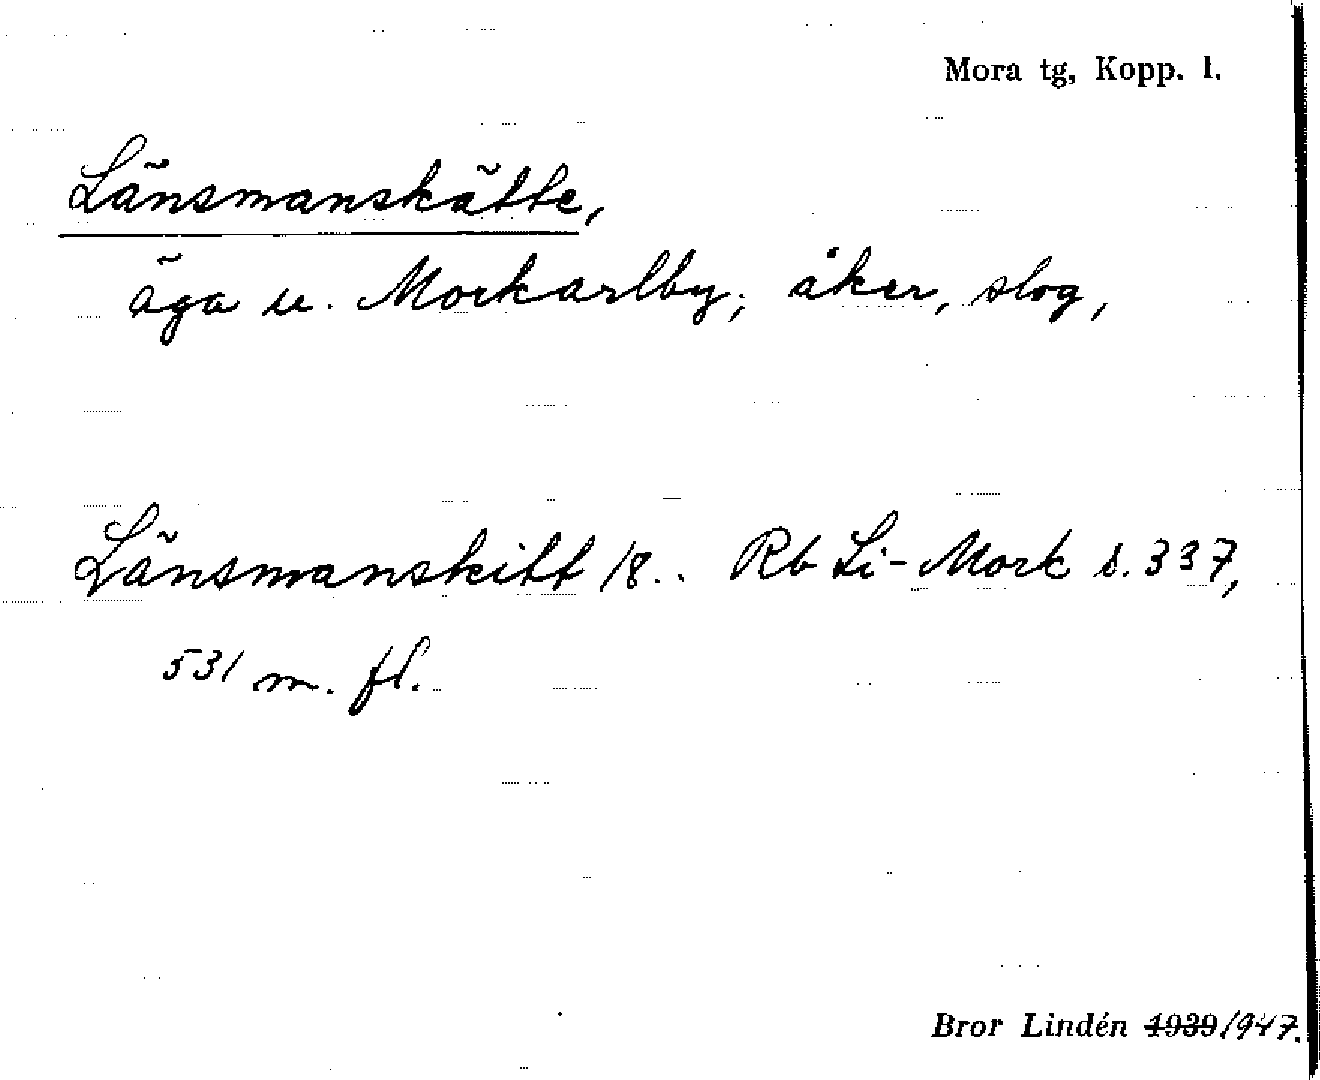 Mora tg, Kopp. l.
Länsmanskätte,
äga u. Morkarlby; åker, slog,
Länsmanskitt 18.. Rb Li-Mork s. 337,
531 m. fl.
Bror Lindén ~~1939~~ 1947.